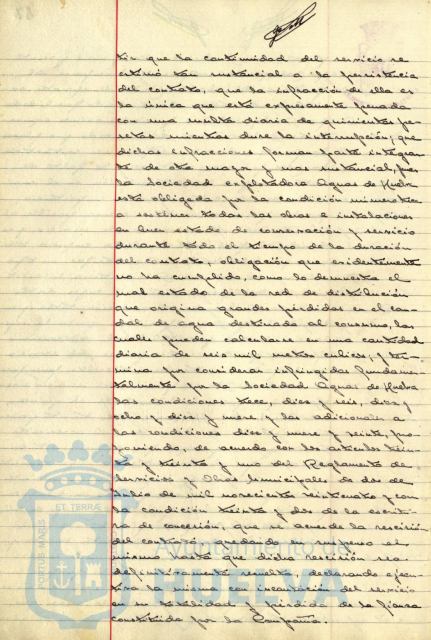 tir que la continuidad del servicio se
estimó tan sustancial a la persistencia
del contrato, que la infracción de ella es
la única que está expresamente penada
con una multa diaria de quinientas pe-
setas mientras dure la interrupción; que
dichas infracciones forman parte integran-
te de otra mayor y mas sustancial, pues
la Sociedad explotadora Aguas de Huelva
está obligada por la condición
a sostener todas las obras e instalaciones
en buen estado de conservación y servicio
durante todo el tiempo de la duración
del contrato, obligación que evidentemente
no ha cumplido, como lo demuestra el
mal estado de la red de distribución
que origina grandes pérdidas en el cau-
dal de agua destinado al consumo, las
cuales pueden calcularse en una cantidad
diaria de seis mil metros cúbicos, y ter-
mina por considerar infringidas fundamen-
talmente por la Sociedad Aguas de Huelva
las condiciones trece, diez y seis, diez y
ocho y diez y nueve y las adicionales a
las condiciones diez y nueve y veinte, pro-
poniendo, de acuerdo con los articulos trein-
ta y treinta y uno del Reglamento de
Servicios y Obras Municipales de dos de
Julio de mil novecientos veinticuatro y con
la condición treinta y dos de la escritu-
ra de concesión, que se acuerde la rescisión
del contrato quedando en suspenso el
mismo hasta que dicha rescisión sea
definitivamente resuelta, declarando ejecu-
tiva la misma con incautación del servicio
en su totalidad y pérdida de la fianza
constituida por la Compañia.
PORTUS MARIS ET TERRAE
Ayuntamiento de
HUELVA